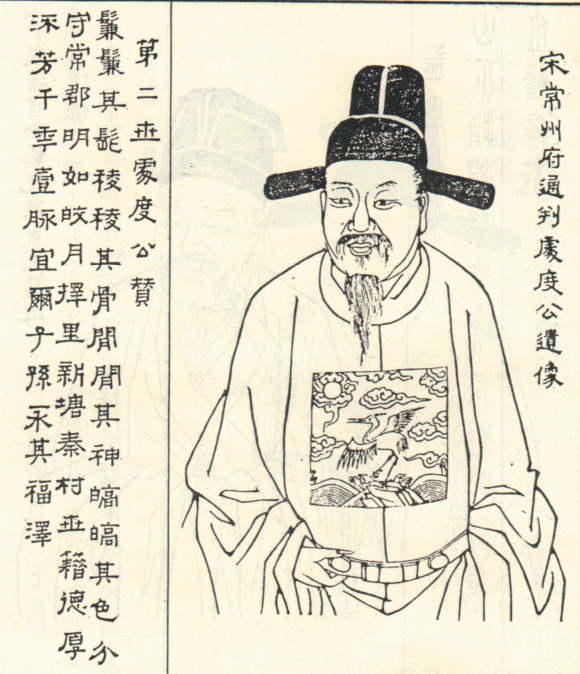 宋常州府通判處度公遺像
苐二世處度公贊
鬑鬑其髭稜稜其骨閒閒其神皜皜其色分
守常郡明如皎月擇里新塘秦村世籍德厚
流芳千季壹脉宜爾子孫永其福澤